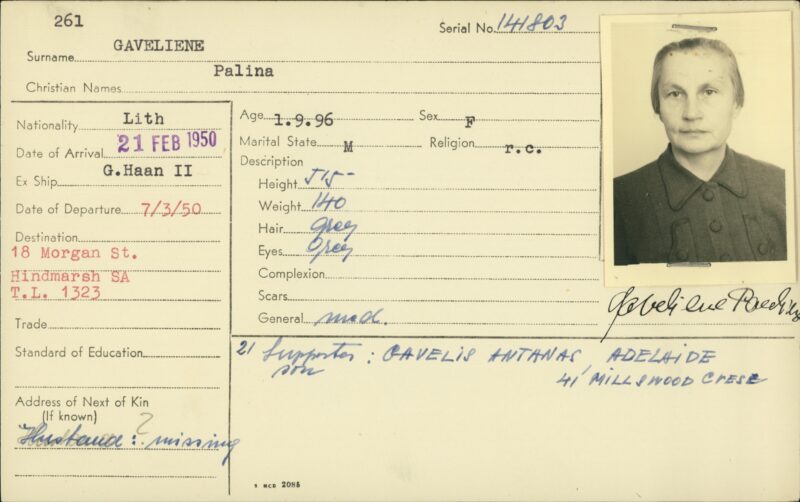 261
Serial No. 141803
Surname GAVELIENE
Christian Names Palina
Nationality Lith
Date of Arrival 21 FEB 1950
Ex Ship G.Haan II
Date of Departure 7/3/50
Destination
18 Morgan St.
Hindmarsh SA
T.L. 1323
Trade
Standard of Education
Address of Next of Kin
(If known) ?
Husband: missing
Age 1.9.96 Sex F
Marital State M Religion r.c.
Description
Height 5'5-
Weight 140
Hair grey
Eyes Grey
Complexion
Scars
General med.
Gaveliene
21 Supporter: GAVELIS ANTANAS ADELAIDE
son 41 MILLSWOOD CRESE
5 MCD 2085